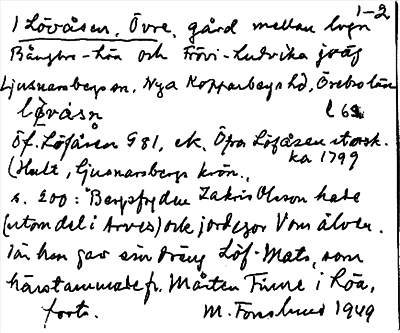 1-2
1 Lövåsen, Övre, gård mellan lvgn
Bångbro-Löa och Frövi-Ludvika jväg
Ljusnarsbergs sn, Nya Kopparbergs hd, Örebro län
lø̀våsn
Öf. Löfåsen G 81, ek. Öfra Löfåsen storsk.
ka 1799
(Hult, Ljusnarsbergs krön.,
s. 200: Bergsfrydm Zakris Olsson hade
(utom del i Arves) ock jordegor Vom älven.
Dän han gav sin dräng Löf-Mats, som
härstammade fr. Mårten Finne i Löa,
forts. M. Forslund 1949